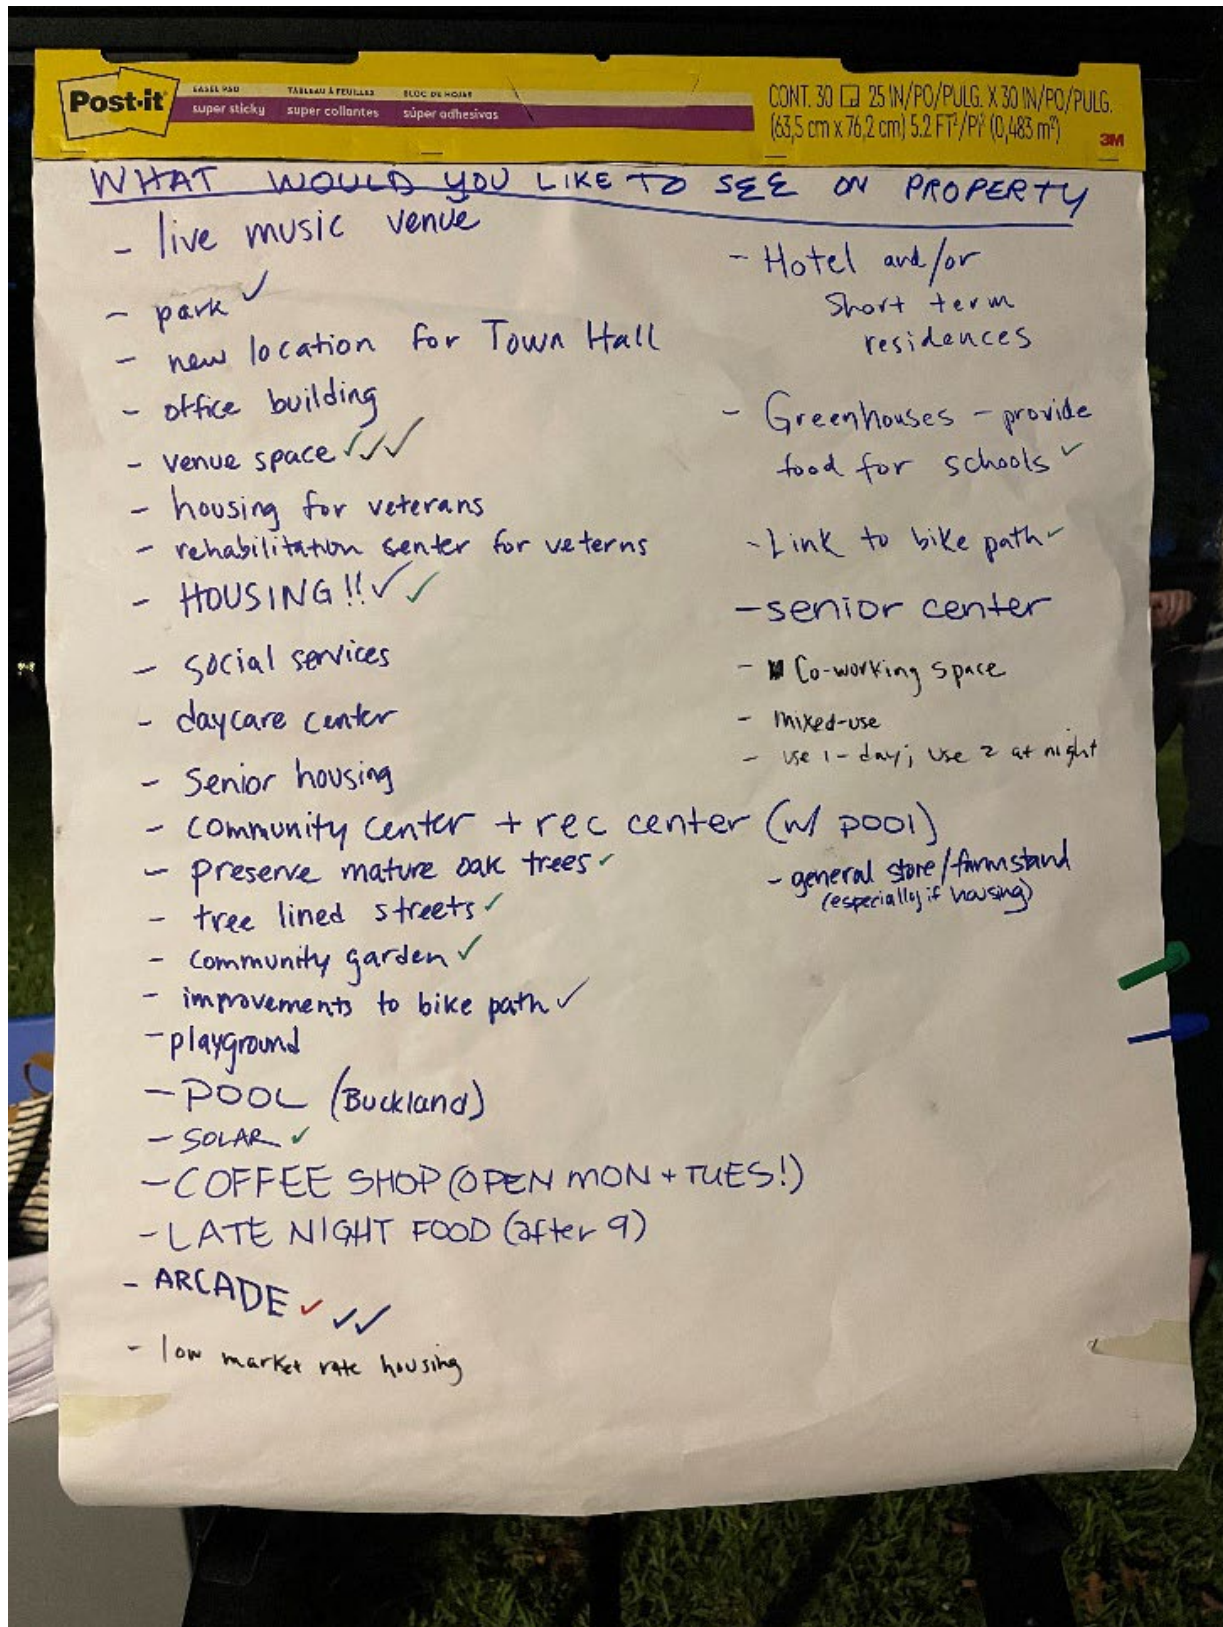 Post-it
EASEL PAD TABLEAU À FEUILLES BLOC DE HOJAS
super sticky super collantes súper adhesivas
CONT. 30 25 IN/PO/PULG. X 30 IN/PO/PULG.
(63,5 cm x 76,2 cm) 5.2 FT²/PI² (0,483 m²)
3M
WHAT WOULD YOU LIKE TO SEE ON PROPERTY
- live music venue
- park ✓
- new location for Town Hall
- office building
- venue space ✓✓✓
- housing for veterans
- rehabilitation center for veterns
- HOUSING!! ✓ ✓
- social services
- daycare center
- Senior housing
- community center + rec center (w/ pool)
- preserve mature oak trees ✓
- tree lined streets ✓
- community garden ✓
- improvements to bike path ✓
- playground
- POOL (Buckland)
- SOLAR ✓
- COFFEE SHOP (OPEN MON + TUES!)
- LATE NIGHT FOOD (after 9)
- ARCADE ✓ ✓✓
- low market rate housing
- Hotel and/or
Short term
residences
- Greenhouses - provide
food for schools ✓
- Link to bike path ✓
- senior center
- Co-working space
- mixed-use
- use 1 - day; use 2 at night
- general store/farmstand
(especially if housing)